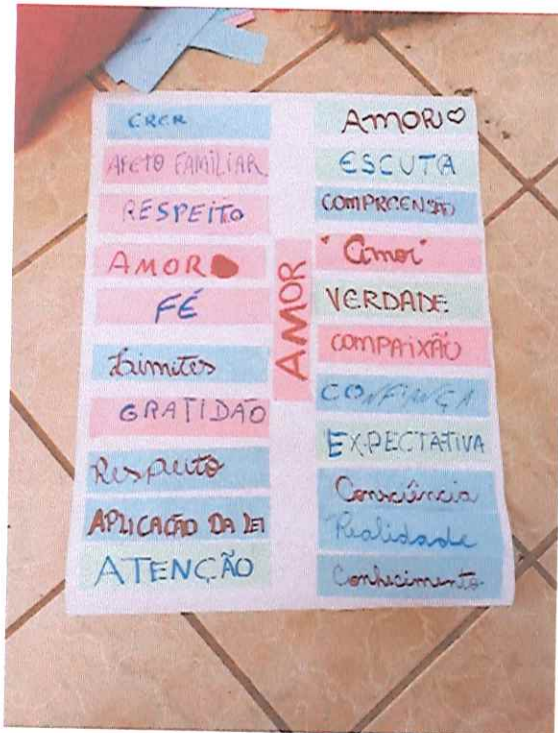 CRER
AFETO FAMILIAR
RESPEITO
AMOR
FÉ
Limites
GRATIDÃO
Respeito
APLICAÇÃO DA LEI
ATENÇÃO
AMOR
AMOR
ESCUTA
COMPREENSÃO
"Amor"
VERDADE
COMPAIXÃO
CONFIANÇA
EXPECTATIVA
Consciência
Realidade
Conhecimento